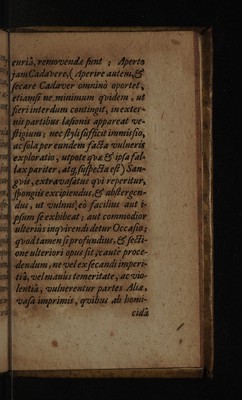 curiâ, removendæ sint ; Aperto
jam Cadavere, (Aperire autem, &
secare Cadaver omninò oportet,
etiamsi ne minimum qvidem, ut
fieri interdum contingit, in exter-
nis partibus læsionis appareat ve-
stigium ; nec styli sufficit immissio,
ac sola per eundem facta vulneris
exploratio, utpote qvæ & ipsa fal-
lax pariter, atq; suspecta est) San-
gvis, extravasatus qvi reperitur,
spongiis excipiendus, & abstergen-
dus, ut vulnus eò facilius aut i-
psum se exhibeat ; aut commodior
ulteriùs inqvirendi detur Occasio ;
qvod tamen si profundius, & secti-
one ulteriori opus sit, cautè proce-
dendum, ne vel ex secandi imperi-
tiâ, vel manûs temeritate, ac vio-
lentiâ, vulnerentur partes Aliæ,
vasa imprimis, qvibus ab homi-
cidâ